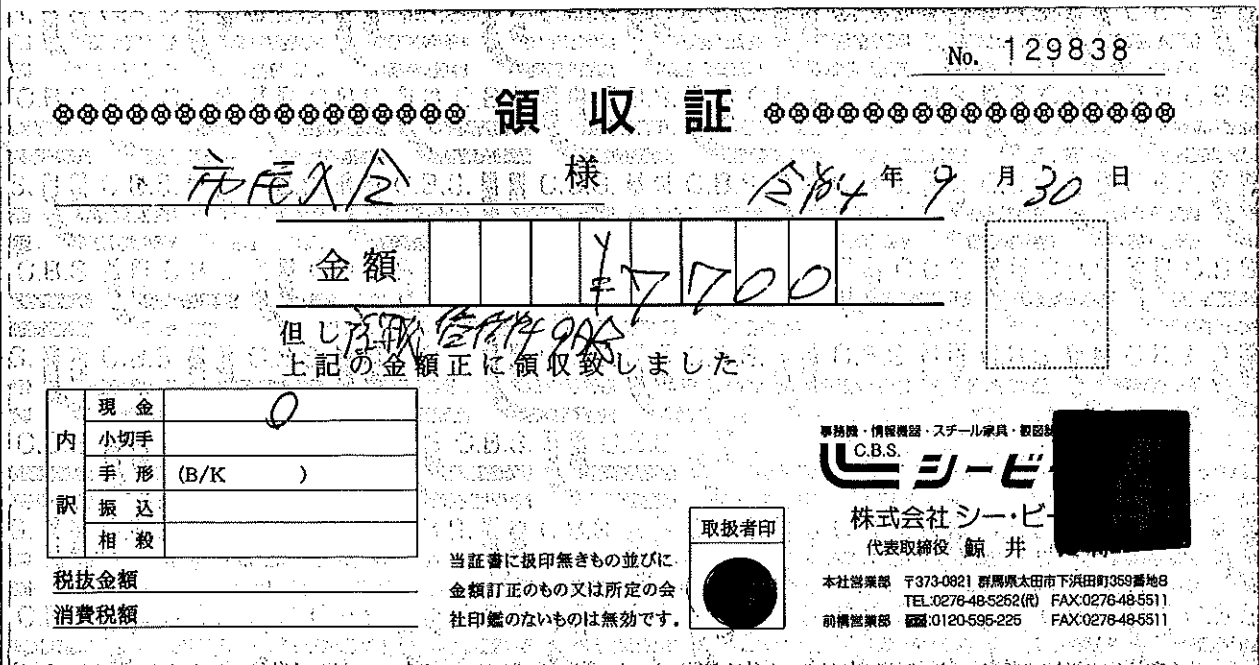 No. 129838
領 収 証
市民入会 様
令和4年9月30日
金額 ¥7700
但し
上記の金額正に領収致しました
内訳
現金 0
小切手
手形 (B/K )
振込
相殺
税抜金額
消費税額
当証書に扱印無きもの並びに
金額訂正のもの又は所定の会
社印鑑のないものは無効です。
取扱者印
事務機・情報機器・スチール家具・
C.B.S.
シービー
株式会社 シー・ビー
代表取締役 鯨井
本社営業部 〒373-0821 群馬県太田市下浜田町359番地8
TEL:0276-48-5252(代) FAX:0276-48-5511
前橋営業部 :0120-595-225 FAX:0276-48-5511